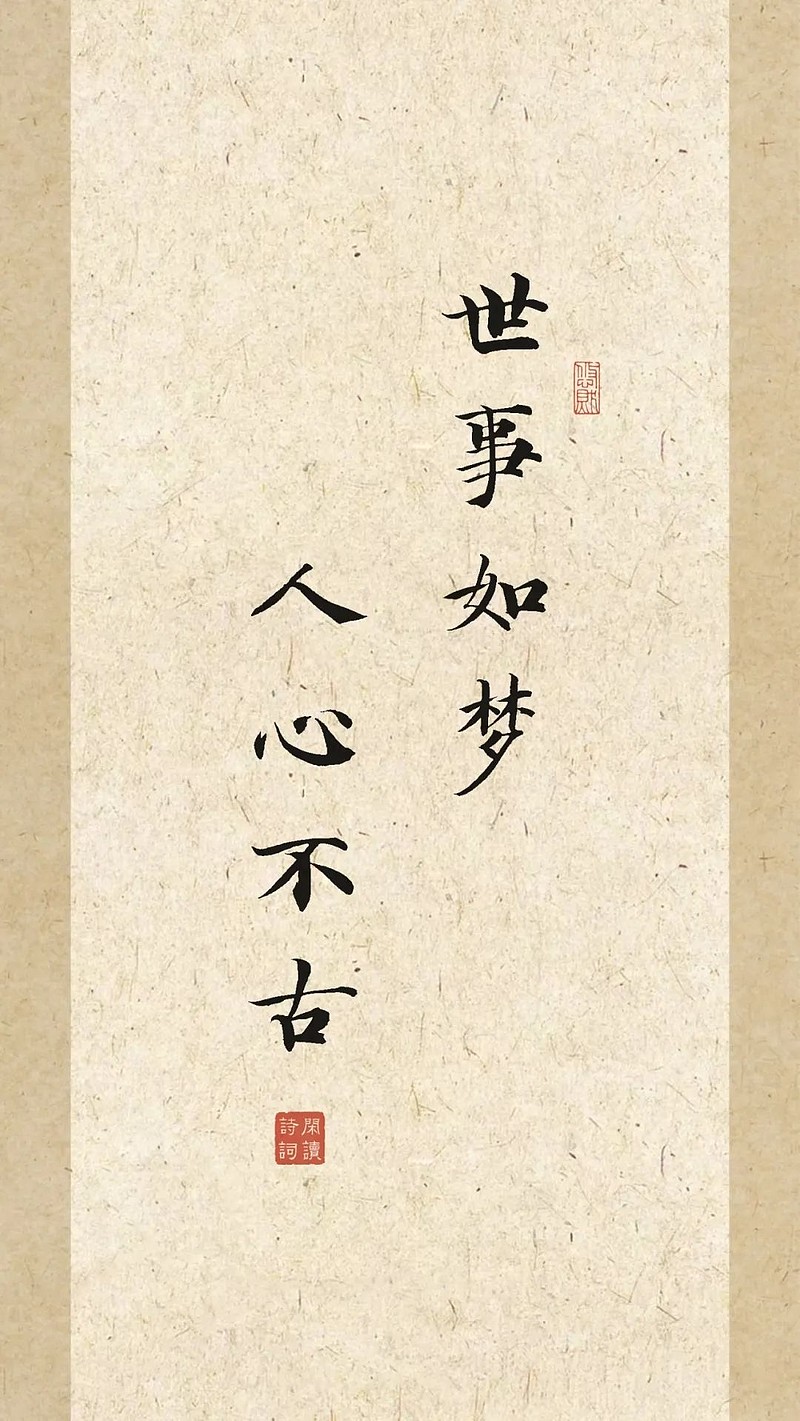 世事如梦
人心不古
閑讀
詩詞